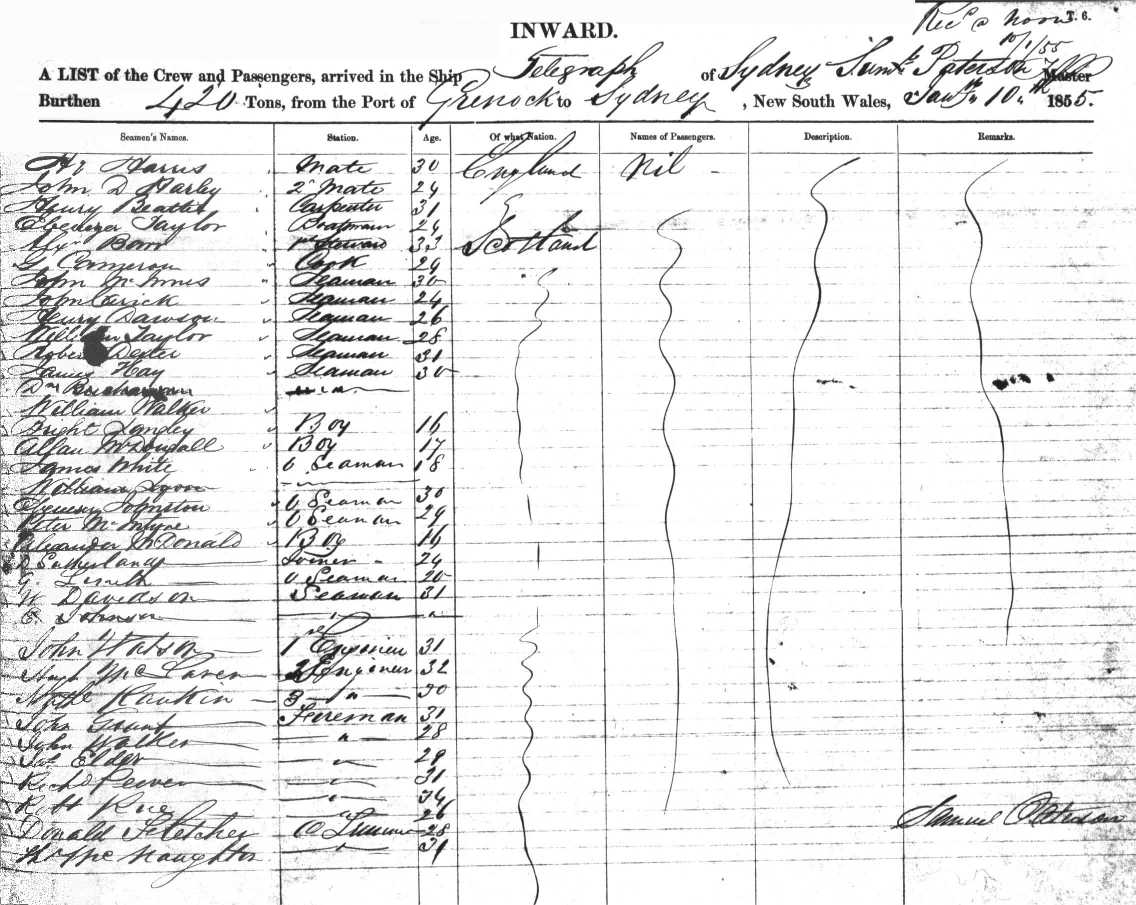 Rec'd @ Noon T. 6.
10/1/55
INWARD.
A LIST of the Crew and Passengers, arrived in the Ship Telegraph of Sydney Saml. Paterson Master
Burthen 420 Tons, from the Port of Greenock to Sydney, New South Wales, Jany. 10th 1855.
Seamen's Names. Station. Age. Of what Nation. Names of Passengers. Description. Remarks.
Hy Harris Mate 30 England Nil
John D Harley 2d Mate 24
Henry Beattie Carpenter 31
Ebenezer Taylor Boatman 24
Alexr Steward 33 Scotland
G. Cameron Cook 29
John McInnes Seaman 30
John Carick Seaman 24
Henry Dawson Seaman 26
William Taylor Seaman 28
Robert Dexter Seaman 31
James Hay Seaman 30
Buchanan
William Walker
Langley Boy 16
Allan McDougall Boy 17
James White O Seaman 18
William
Johnston O Seaman 30
Peter McIntyre O Seaman 29
Alexander McDonald Boy 16
D Sutherland Joiner 24
G. Smith O Seaman 20
W Davidson Seaman 31
Johnson "
John Watson 1st Engineer 31
Hugh McLaren 2 Engineer 32
Rankin 3 " 30
John Grant Fireman 31
John Walker " 28
Jas Elder " 29
Richd " 31
Robt " 34
26
Donald Fletcher 28 Samuel Paterson
McNaughton " 31